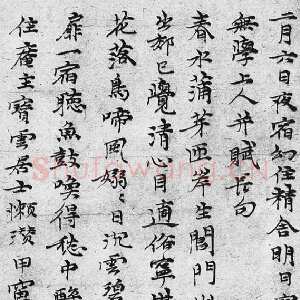 二月六日夜宿幻住精舍明日
無學上人并賦長句
春水蒲芽匝岸生閶門
坐已覺清心目適俗寧
花落鳥啼風嫋〻日沉雲碧
扉一宿聽魚鼓喚得中醉
住菴主寶雲居士懶瓚甲寅